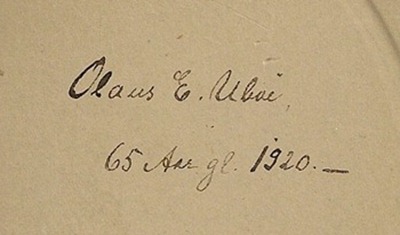 Olaus E. Uboe,
65 Aar gl. 1920.—